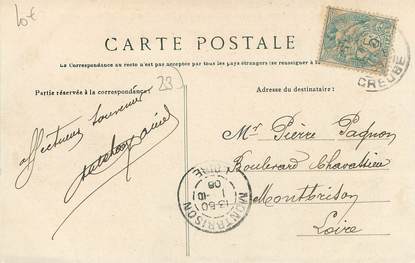 10€
CARTE POSTALE
La Correspondance au recto n'est pas acceptée par tous les pays étrangers (se renseigner à
Partie réservée à la correspondance
23)
Adresse du destinataire:
affectueux souvenir
Mr Pierre Pagnon
Boulevard Chavassieu
Montbrison
Loire
CREUSE
MONTBRISON
13-50
1-10
08
LOIRE